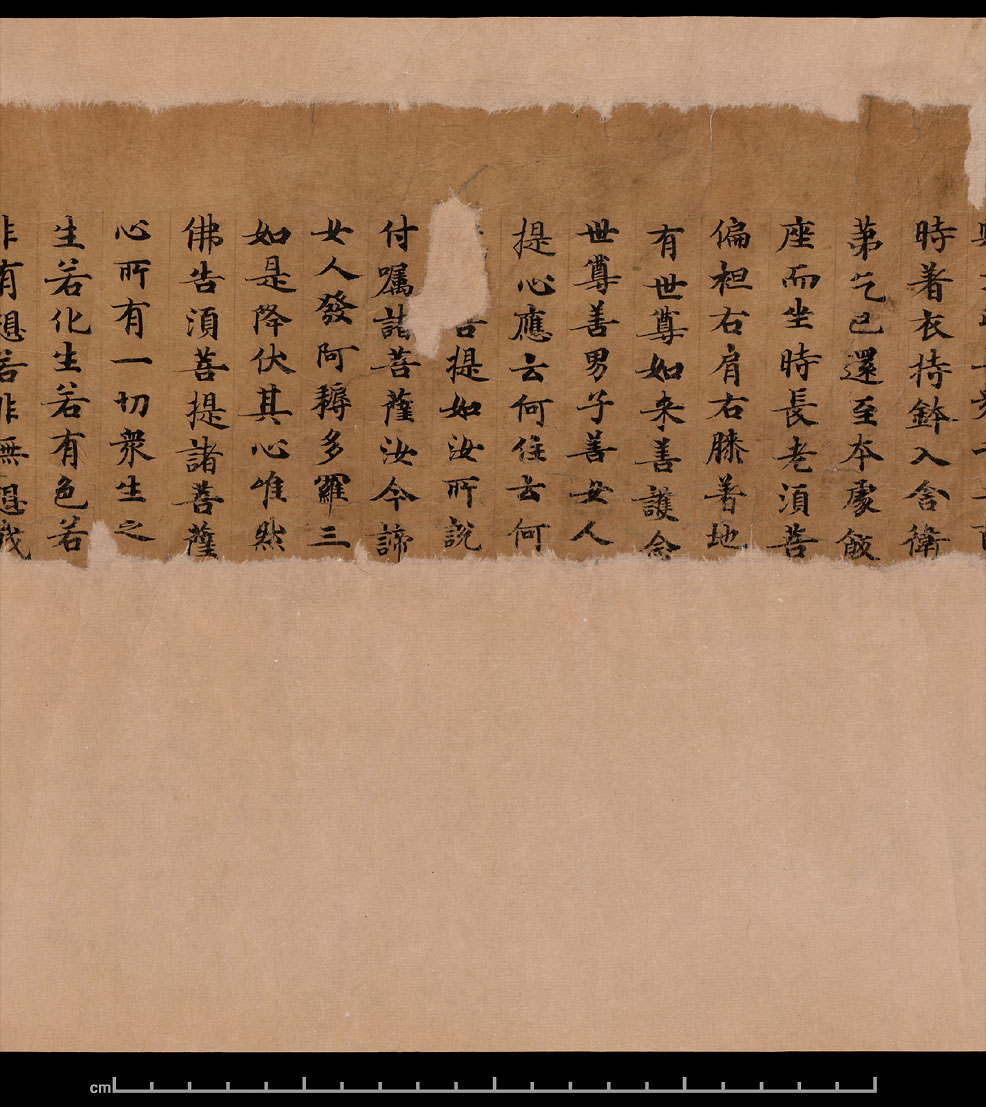 時著衣持鉢入舍衛
苐乞已還至本處飯
座而坐時長老湏菩
偏袒右肩右膝著地
有世尊如来善護念
世尊善男子善女人
提心應云何住云何
菩提如汝所說
付囑諸菩薩汝今諦
女人發阿耨多羅三
如是降伏其心唯然
佛告湏菩提諸菩薩
心所有一切衆生之
生若化生若有色若
非有想若非無想我
cm